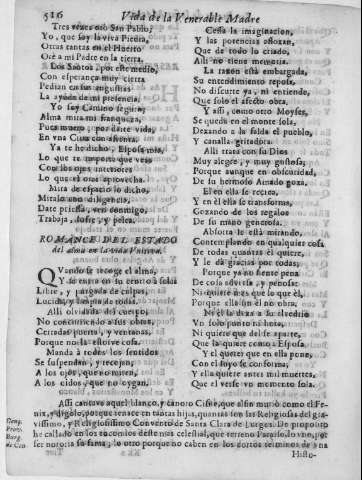 516 Vida de la Venerable Madre
Tres vezes orò San Pablo;
Yo, que soy la viva Piedra,
Otras tantas en el Huerto
Orè à mi Padre en la tierra.
Los Santos, por este medio,
Con esperança muy cierta
Pedian en sus angustias
La ayuda de mi presencia.
Yo soy Camino seguro;
Alma mira mi franqueza,
Pues muero, por darte vida,
En una Cruz con afrenta.
Ya te he dicho, Esposa mia,
Lo que te importa que veas
Con los ojos interiores
Lo que el orar aprovecha.
Mira de espacio lo dicho,
Miralo con diligencia,
Date priessa, ven conmigo,
Trabaja, sufre, y pelea.
ROMANCE DEL ESTADO
del alma en la vida Unitiva.
QVando se recoge el alma,
Y se entra en su centro à solas
Libre, y purgada de culpas,
Lucida, y limpia de todas.
Alli olvidada del cuerpo,
No concurriendo à sus obras,
Cerradas puertas, y ventanas,
Porque nada la estorve cosa.
Manda à todos los sentidos
Se suspendan, y recojan,
A los ojos, que no miren,
A los oidos, que no oygan.
Cessa la imaginacion,
Y las potencias afloxan,
Que de todo lo criado,
Alli no tiene memoria.
La razon està embargada,
Su entendimiento reposa,
No discurre ya, ni entiende,
Que solo el afecto obra.
Y assi, como otro Moyses,
Se queda en el monte sola,
Dexando à la falda el pueblo,
Y canalla gritadora.
Alli trata con su Dios
Muy alegre, y muy gustosa;
Porque aunque en obscuridad,
De su hermoso Amado goza.
El en ella se recrea,
Y en èl ella se transforma,
Gozando de los regalos
De su mano generosa.
Absorta le està mirando,
Contemplando en qualquier cosa
De todas quantas èl quiere,
Y le dà gracias por todas;
Porque ya no siente pena
De cosa adversa, y penosa:
Ni quiere mas que lo que èl,
Porque ella sin èl no obra.
Ni èl la dexa à su alvedrio
Un solo punto ni hora,
Ni quiere que del se aparte,
Que la quiere como à Esposa.
Y el querer que en ella pone,
Con el suyo se conforma,
Y ella quiere antes mil muertes,
Que el verse un momento sola.
Assi cantava aquel blanco, y canoro Cisne, que al fin muriò como el Fe-
nix, y digolo, porque renace en tantas hijas, quantas son las Religiosas del gra-
vissimo, y Religiosissimo Convento de Santa Clara de Burgos. De proposito
he callado en los tocomios deste mas celestial, que terreno Paraiso, lo uno, por
ser notoria su fama; lo otro porque no caben en los cortos terminos de una
Histo-